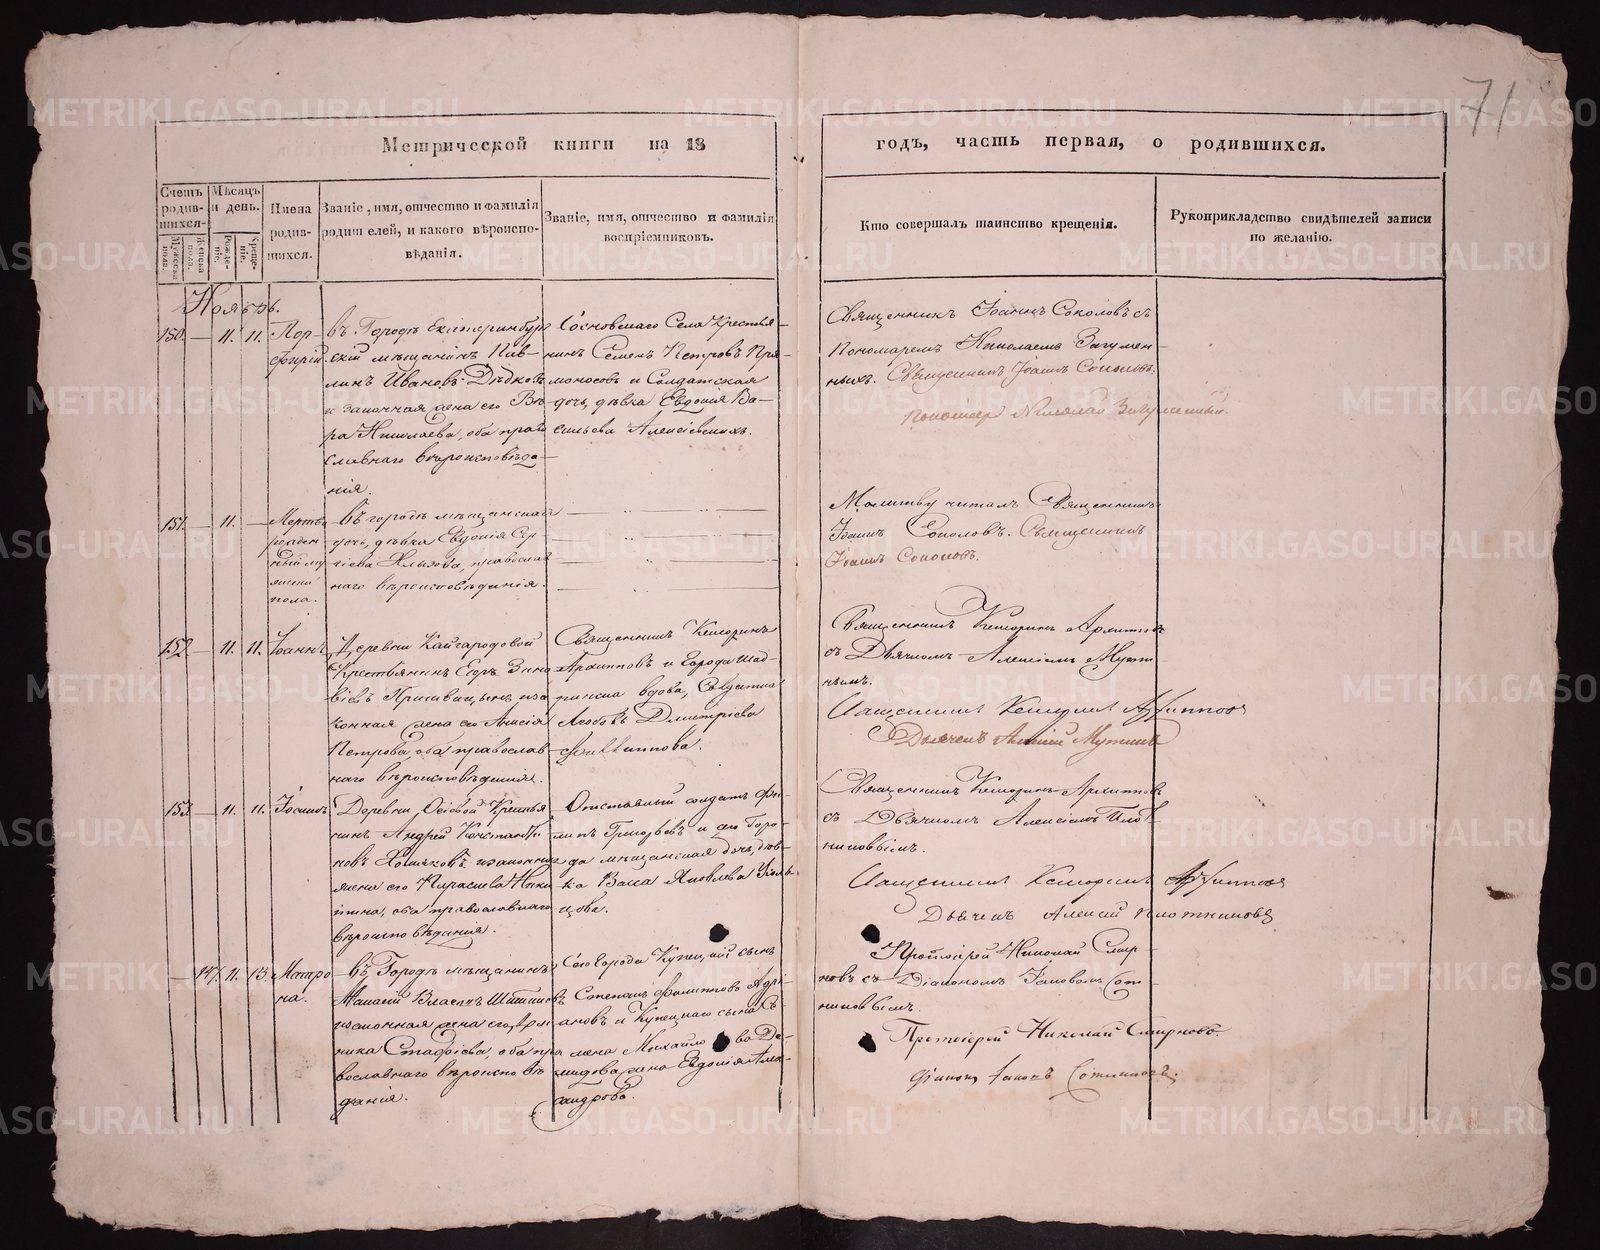 71
Метрической книги на 18
годъ, часть первая, о родившихся.
Счетъ родив-шихся.
Мужеска пола.
Женска пола.
Мѣсяцъ и день.
Рожде-ніе.
Креще-ніе.
Имена родив-шихся.
Званіе, имя, отчество и фамилія родителей, и какого вѣроиспо-вѣданія.
Званіе, имя, отчество и фамилія воспріемниковъ.
Кто совершалъ таинство крещенія.
Рукоприкладство свидѣтелей записи по желанію.
Ноябрь.
150. — 11. 11. Пор-
фирій
въ Городѣ Екатеринбург
скій мѣщанинъ Пав-
линъ Ивановъ Дѣдковъ
и законная жена его Вѣ-
ра Николаева, оба право
славнаго вѣроисповѣда-
нія.
Сосновскаго Села Крестья-
нинъ Семенъ Петровъ
и Солдатская
дочь, дѣвка Евдокія Ва-
сильева Алексѣевскихъ.
Священникъ Іоаннъ Соколовъ съ
Пономаремъ Николаемъ Загумен-
ныхъ. Священникъ Іоаннъ Соколовъ.
Пономарь Николай Загуменныхъ
151. — 11. — Мертво
рожден
ный му
жеска
пола.
въ городѣ мѣщанская
дочь, дѣвка Евдокія Сер
гіева, православ
наго вѣроисповѣданія.
Молитву читалъ Священникъ
Іоаннъ Соколовъ. Священникъ
Іоаннъ Соколовъ.
152. — 11. 11. Іоаннъ
Деревни Кайгородовой
Крестьянинъ Егоръ Зино
віевъ и за
конная жена его Анисія
Петрова, оба православ-
наго вѣроисповѣданія.
Священникъ Кесторинъ
Архиповъ и города Шад-
ринска вдова, Солдатка
Любовь Дмитріева
Священникъ Кесторинъ Архиповъ
съ Дьячкомъ Алексѣемъ Мути-
нымъ.
Священникъ Кесторинъ Архиповъ
Дьячекъ Алексѣй Мутинъ
153. — 11. 11. Іосифъ
Деревни Крестья-
нинъ Андрей Константи
новъ Хомяковъ и законная
жена его Параскева Ники
тина, оба православнаго
вѣроисповѣданія.
Отставный солдатъ Фи-
липъ Григорьевъ и сего Горо-
да мѣщанская дочь, дѣв-
ка Васса Яковлева
цова.
Священникъ Кесторинъ Архиповъ
съ Дьячкомъ Алексѣемъ Плот-
никовымъ.
Священникъ Кесторинъ Архиповъ
Дьячекъ Алексѣй Плотниковъ
— 147. 11. 13. Матро
на.
въ Городѣ мѣщанинъ
Власовъ
и законная жена его
ника Стафѣева, оба пра
вославнаго вѣроисповѣ
данія.
Сего города Купецкій сынъ
Степанъ Филиповъ Адрі-
ановъ и Купецкаго сына Се-
мена Михайло ва Де-
мидова, жена Евдокія Алек-
сандрова.
Протоіерей Николай Смир-
новъ съ Діакономъ Іаковомъ Сот-
никовымъ.
Протоіерей Николай Смирновъ.
Діаконъ Іаковъ Сотниковъ.
METRIKI.GASO-URAL.RU